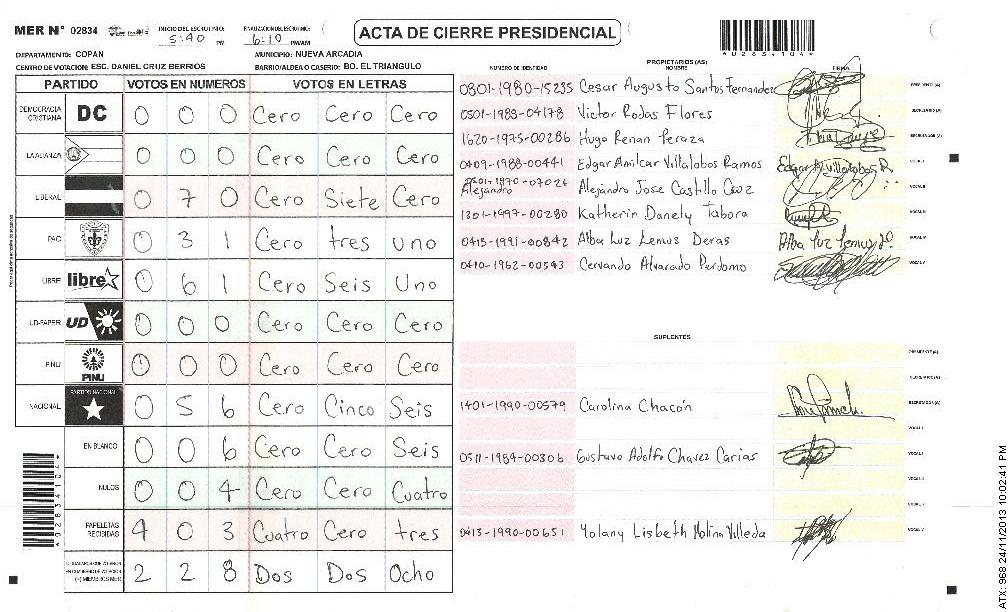 MER N° 02834
INICIO DEL ESCRUTINIO: 5:40 PM
FINALIZACION DEL ESCRUTINIO: 6:10 PM/AM
ACTA DE CIERRE PRESIDENCIAL
4028341044
DEPARTAMENTO: COPAN
MUNICIPIO: NUEVA ARCADIA
CENTRO DE VOTACION: ESC. DANIEL CRUZ BERRIOS
BARRIO/ALDEA O CASERIO: BO. EL TRIANGULO
PARTIDO VOTOS EN NUMEROS VOTOS EN LETRAS
DEMOCRACIA CRISTIANA DC 0 0 0 Cero Cero Cero
LA ALIANZA 0 0 0 Cero Cero Cero
LIBERAL 0 7 0 Cero Siete Cero
PAC 0 3 1 Cero tres uno
LIBRE libre 0 6 1 Cero Seis Uno
UD-FAPER UD 0 0 0 Cero Cero Cero
PINU PINU 0 0 0 Cero Cero Cero
NACIONAL PARTIDO NACIONAL 0 5 6 Cero Cinco Seis
EN BLANCO 0 0 6 Cero Cero Seis
NULOS 0 0 4 Cero Cero Cuatro
PAPELETAS RECIBIDAS 4 0 3 Cuatro Cero tres
(+) MIEMBROS MER 2 2 8 Dos Dos Ocho
PROPIETARIOS (AS)
NUMERO DE IDENTIDAD NOMBRE FIRMA
0801-1980-15235 Cesar Augusto Santos Fernandez PRESIDENTE (A)
0501-1983-04178 Victor Rodas Flores SECRETARIO (A)
1620-1975-00286 Hugo Renan Peraza ESCRUTADOR (A)
0409-1988-00441 Edgar Amilcar Villalobos Ramos Edgar A. Villalobos R. VOCAL I
Alejandro Alejandro Jose Castillo VOCAL II
1301-1997-00280 Katherin Danely Tabora VOCAL III
0413-1991-00842 Alba Luz Lemus Deras Alba luz lemus VOCAL IV
0410-1962-00543 Cervando Alvarado Perdomo VOCAL V
SUPLENTES
PRESIDENTE (A)
SECRETARIO (A)
1401-1990-00579 Carolina Chacón ESCRUTADOR (A)
VOCAL I
0511-1984-00306 Gustavo Adolfo Chavez Carias
0413-1990-00651 Yolany Lisbeth Molina Villeda VOCAL V
ATX: 968 24/11/2013 10:02:41 PM